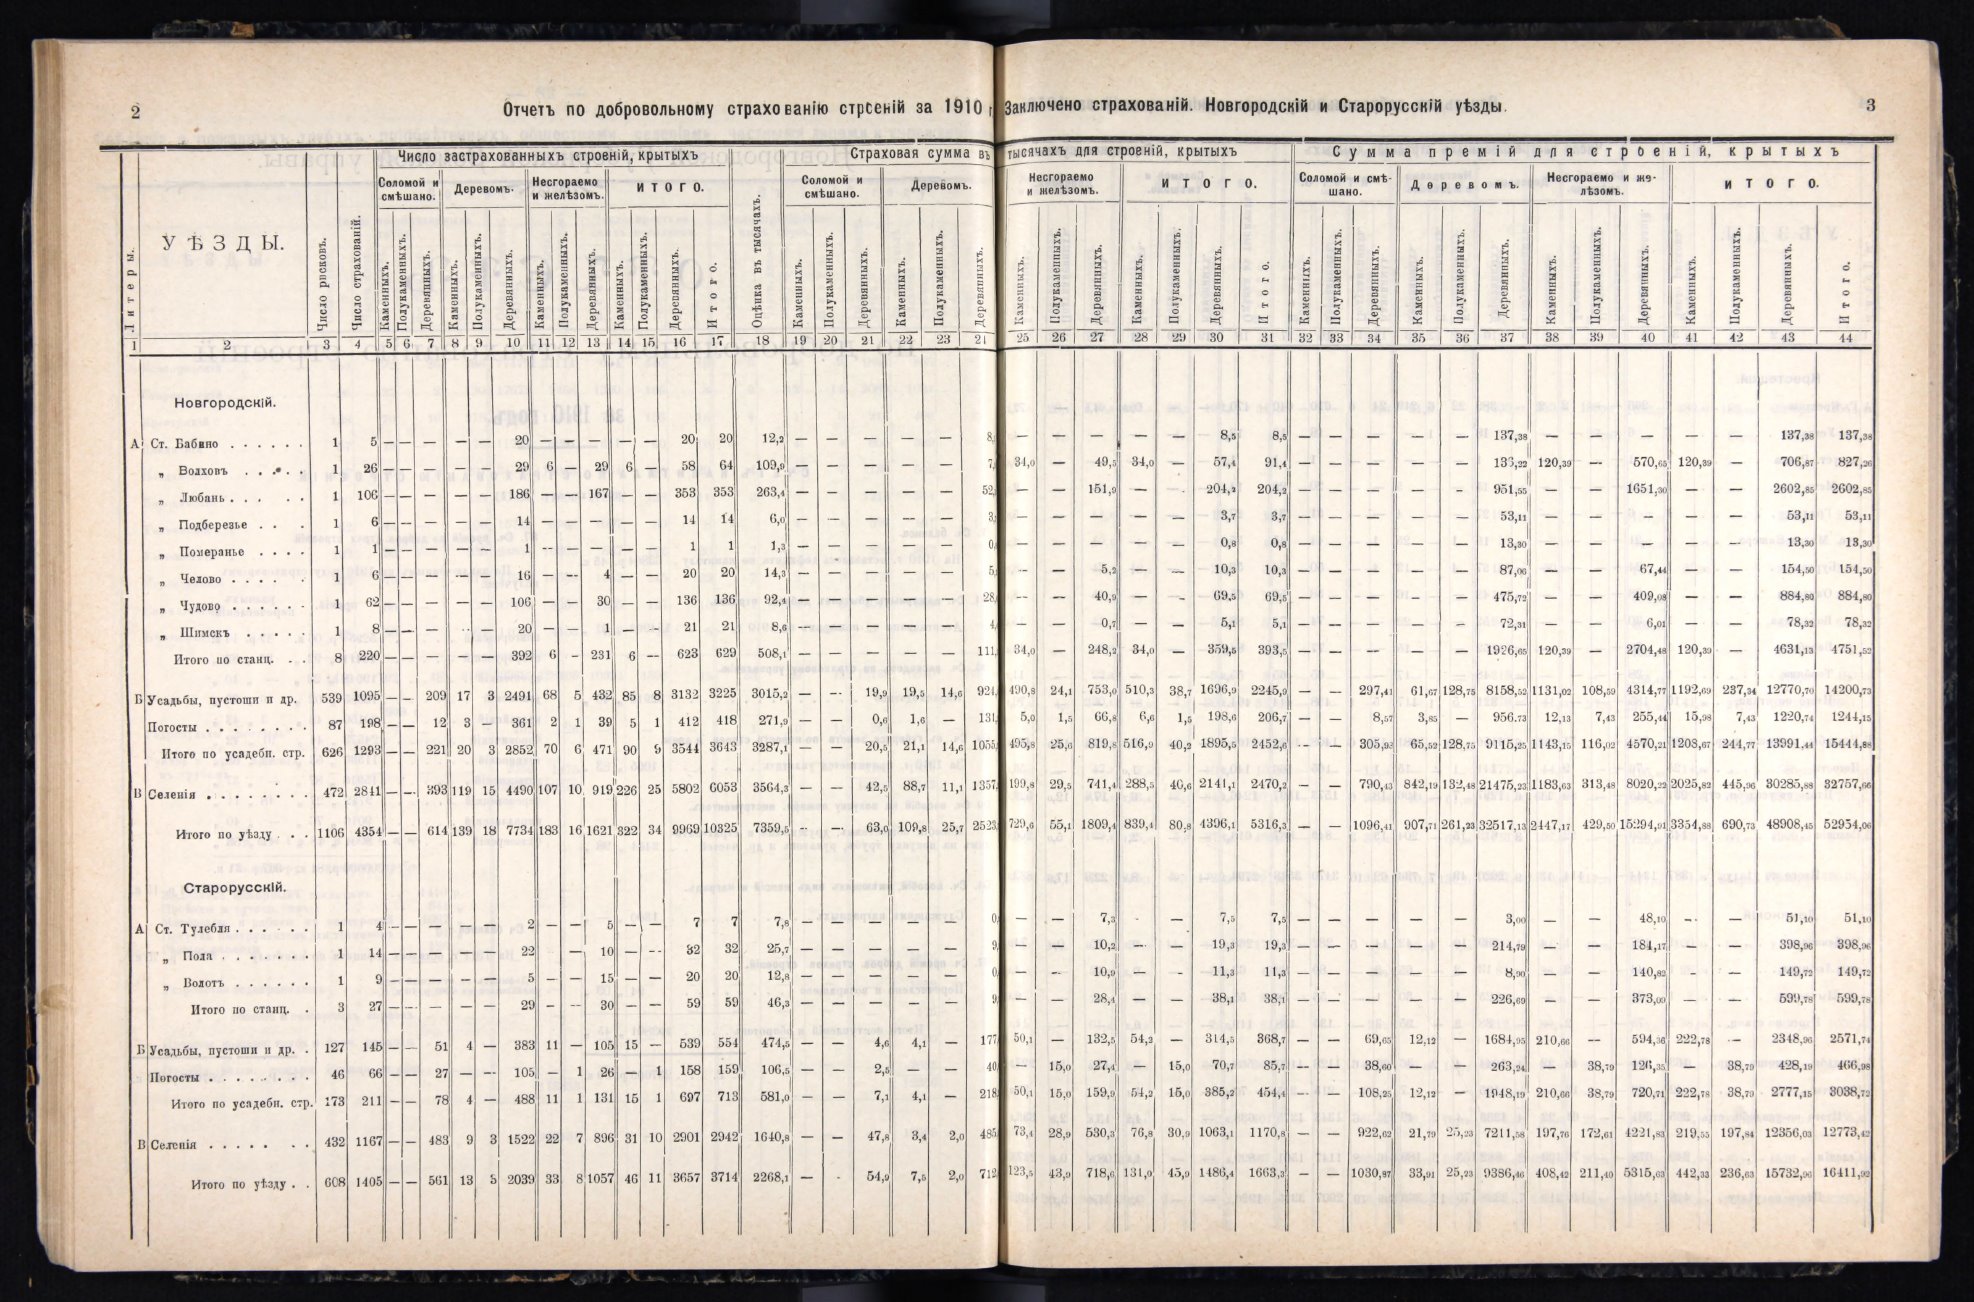 2
Отчетъ по добровольному страхованію строеній за 1910 г.
Заключено страхованій. Новгородскій и Старорусскій уѣзды.
3
Литеры.
УѢЗДЫ.
Число рисковъ.
Число страхованій.
Число застрахованныхъ строеній, крытыхъ
Соломой и смѣшано.
Деревомъ.
Несгораемо и желѣзомъ.
ИТОГО.
Оцѣнка въ тысячахъ.
Страховая сумма въ тысячахъ для строеній, крытыхъ
Соломой и смѣшано.
Деревомъ.
Несгораемо и желѣзомъ.
ИТОГО.
Сумма премій для строеній, крытыхъ
Соломой и смѣшано.
Деревомъ.
Несгораемо и желѣзомъ.
ИТОГО.
Каменныхъ. Полукаменныхъ. Деревянныхъ. Каменныхъ. Полукаменныхъ. Деревянныхъ. Каменныхъ. Полукаменныхъ. Деревянныхъ. Каменныхъ. Полукаменныхъ. Деревянныхъ. Итого.
Каменныхъ. Полукаменныхъ. Деревянныхъ. Каменныхъ. Полукаменныхъ. Деревянныхъ. Каменныхъ. Полукаменныхъ. Деревянныхъ. Каменныхъ. Полукаменныхъ. Деревянныхъ. Итого.
Каменныхъ. Полукаменныхъ. Деревянныхъ. Каменныхъ. Полукаменныхъ. Деревянныхъ. Каменныхъ. Полукаменныхъ. Деревянныхъ. Каменныхъ. Полукаменныхъ. Деревянныхъ. Итого.
1 2 3 4 5 6 7 8 9 10 11 12 13 14 15 16 17 18 19 20 21 22 23 24 25 26 27 28 29 30 31 32 33 34 35 36 37 38 39 40 41 42 43 44
Новгородскій.
А Ст. Бабино . . . . . . 1 5 — — — — — 20 — — — — — 20 20 12,2 — — — — — 8, — — — — — 8,5 8,5 — — — — — 137,38 — — — — — 137,38 137,38
„ Волховъ . . . . 1 26 — — — — — 29 6 — 29 6 — 58 64 109,9 — — — — — 7, 34,0 — 49,5 34,0 — 57,4 91,4 — — — — — 136,22 120,39 — 570,65 120,39 — 706,87 827,26
„ Любань . . . . . 1 106 — — — — — 186 — — 167 — — 353 353 263,4 — — — — — 52, — — 151,9 — — 204,2 204,2 — — — — — 951,55 — — 1651,30 — — 2602,85 2602,85
„ Подберезье . . . 1 6 — — — — — 14 — — — — — 14 14 6,0 — — — — — 3, — — — — — 3,7 3,7 — — — — — 53,11 — — — — — 53,11 53,11
„ Померанье . . . . 1 1 — — — — — 1 — — — — — 1 1 1,3 — — — — — 0, — — — — — 0,8 0,8 — — — — — 13,30 — — — — — 13,30 13,30
„ Челово . . . . . 1 6 — — — — — 16 — — 4 — — 20 20 14,3 — — — — — 5, — — 5,2 — — 10,3 10,3 — — — — — 87,06 — — 67,44 — — 154,50 154,50
„ Чудово . . . . . . 1 62 — — — — — 106 — — 30 — — 136 136 92,4 — — — — — 28, — — 40,9 — — 69,5 69,5 — — — — — 475,72 — — 409,08 — — 884,80 884,80
„ Шимскъ . . . . 1 8 — — — — — 20 — — 1 — — 21 21 8,6 — — — — — 4, — — 0,7 — — 5,1 5,1 — — — — — 72,31 — — 6,01 — — 78,32 78,32
Итого по станц. . . 8 220 — — — — — 392 6 — 231 6 — 623 629 508,1 — — — — — 111, 34,0 — 248,2 34,0 — 359,5 393,5 — — — — — 1926,65 120,39 — 2704,48 120,39 — 4631,13 4751,52
Б Усадьбы, пустоши и др. 539 1095 — — 209 17 3 2491 68 5 432 85 8 3132 3225 3015,2 — — 19,9 19,5 14,6 924, 490,8 24,1 753,0 510,3 38,7 1696,9 2245,9 — — 297,41 61,67 128,75 8158,52 1131,02 108,59 4314,77 1192,69 237,34 12770,70 14200,73
Погосты . . . . . . . . 87 198 — — 12 3 — 361 2 1 39 5 1 412 418 271,9 — — 0,6 1,6 — 131, 5,0 1,5 66,8 6,6 1,5 198,6 206,7 — — 8,57 3,85 — 956.73 12,13 7,43 255,44 15,98 7,43 1220,74 1244,15
Итого по усадебн. стр. 626 1293 — — 221 20 3 2852 70 6 471 90 9 3544 3643 3287,1 — — 20,5 21,1 14,6 1055, 495,8 25,6 819,8 516,9 40,2 1895,5 2452,6 — — 305,98 65,52 128,75 9115,25 1143,15 116,02 4570,21 1208,67 244,77 13991,44 15444,88
В Селенія . . . . . . . . 472 2841 — — 393 119 15 4490 107 10 919 226 25 5802 6053 3564,3 — — 42,5 88,7 11,1 1357, 199,8 29,5 741,4 288,5 40,6 2141,1 2470,2 — — 790,43 842,19 132,48 21475,23 1183,63 313,48 8020,22 2025,82 445,96 30285,88 32757,66
Итого по уѣзду . . . 1106 4354 — — 614 139 18 7734 183 16 1621 322 34 9969 10325 7359,5 — — 63,0 109,8 25,7 2523, 729,6 55,1 1809,4 839,4 80,8 4396,1 5316,3 — — 1096,41 907,71 261,23 32517,13 2447,17 429,50 15294,91 3354,88 690,73 48908,45 52954,06
Старорусскій.
А Ст. Тулебля . . . . . . 1 4 — — — — — 2 — — 5 — — 7 7 7,8 — — — — — 0, — — 7,3 — — 7,5 7,5 — — — — — 3,00 — — 48,10 — — 51,10 51,10
„ Пола . . . . . . . 1 14 — — — — — 22 — 10 — — 32 32 25,7 — — — — — 9, — — 10,2 — — 19,3 19,3 — — — — — 214,79 — — 184,17 — — 398,96 398,96
„ Волотъ . . . . . . 1 9 — — — — — 5 — — 15 — — 20 20 12,8 — — — — — 0, — — 10,9 — — 11,3 11,3 — — — — — 8,90 — — 140,82 — — 149,72 149,72
Итого по станц. . 3 27 — — — — — 29 — — 30 — — 59 59 46,3 — — — — — 9, — — 28,4 — — 38,1 38,1 — — — — — 226,69 — — 373,09 — — 599,78 599,78
Б Усадьбы, пустоши и др. . 127 145 — — 51 4 — 383 11 — 105 15 — 539 554 474,5 — — 4,6 4,1 — 177, 50,1 — 132,5 54,2 — 314,5 368,7 — — 69,65 12,12 — 1684,95 210,66 — 594,36 222,78 — 2348,96 2571,74
Погосты . . . . . . . . 46 66 — — 27 — — 105 — 1 26 — 1 158 159 106,5 — — 2,5 — — 40, — 15,0 27,4 — 15,0 70,7 85,7 — — 38,60 — — 263,24 — 38,79 126,35 — 38,79 428,19 466,98
Итого по усадебн. стр. 173 211 — — 78 4 — 488 11 1 131 15 1 697 713 581,0 — — 7,1 4,1 — 218, 50,1 15,0 159,9 54,2 15,0 385,2 454,4 — — 108,25 12,12 — 1948,19 210,66 38,79 720,71 222,78 38,79 2777,15 3038,72
В Селенія . . . . . . . 432 1167 — — 483 9 3 1522 22 7 896 31 10 2901 2942 1640,8 — — 47,8 3,4 2,0 485, 73,4 28,9 530,3 76,8 30,9 1063,1 1170,8 — — 922,62 21,79 25,23 7211,58 197,76 172,61 4221,83 219,55 197,84 12356,03 12773,42
Итого по уѣзду . . 608 1405 — — 561 13 3 2039 33 8 1057 46 11 3657 3714 2268,1 — — 54,9 7,5 2,0 712, 123,5 43,9 718,6 131,0 45,9 1486,4 1663,3 — — 1030,87 33,91 25,23 9386,46 408,42 211,40 5315,63 442,33 236,63 15732,96 16411,92